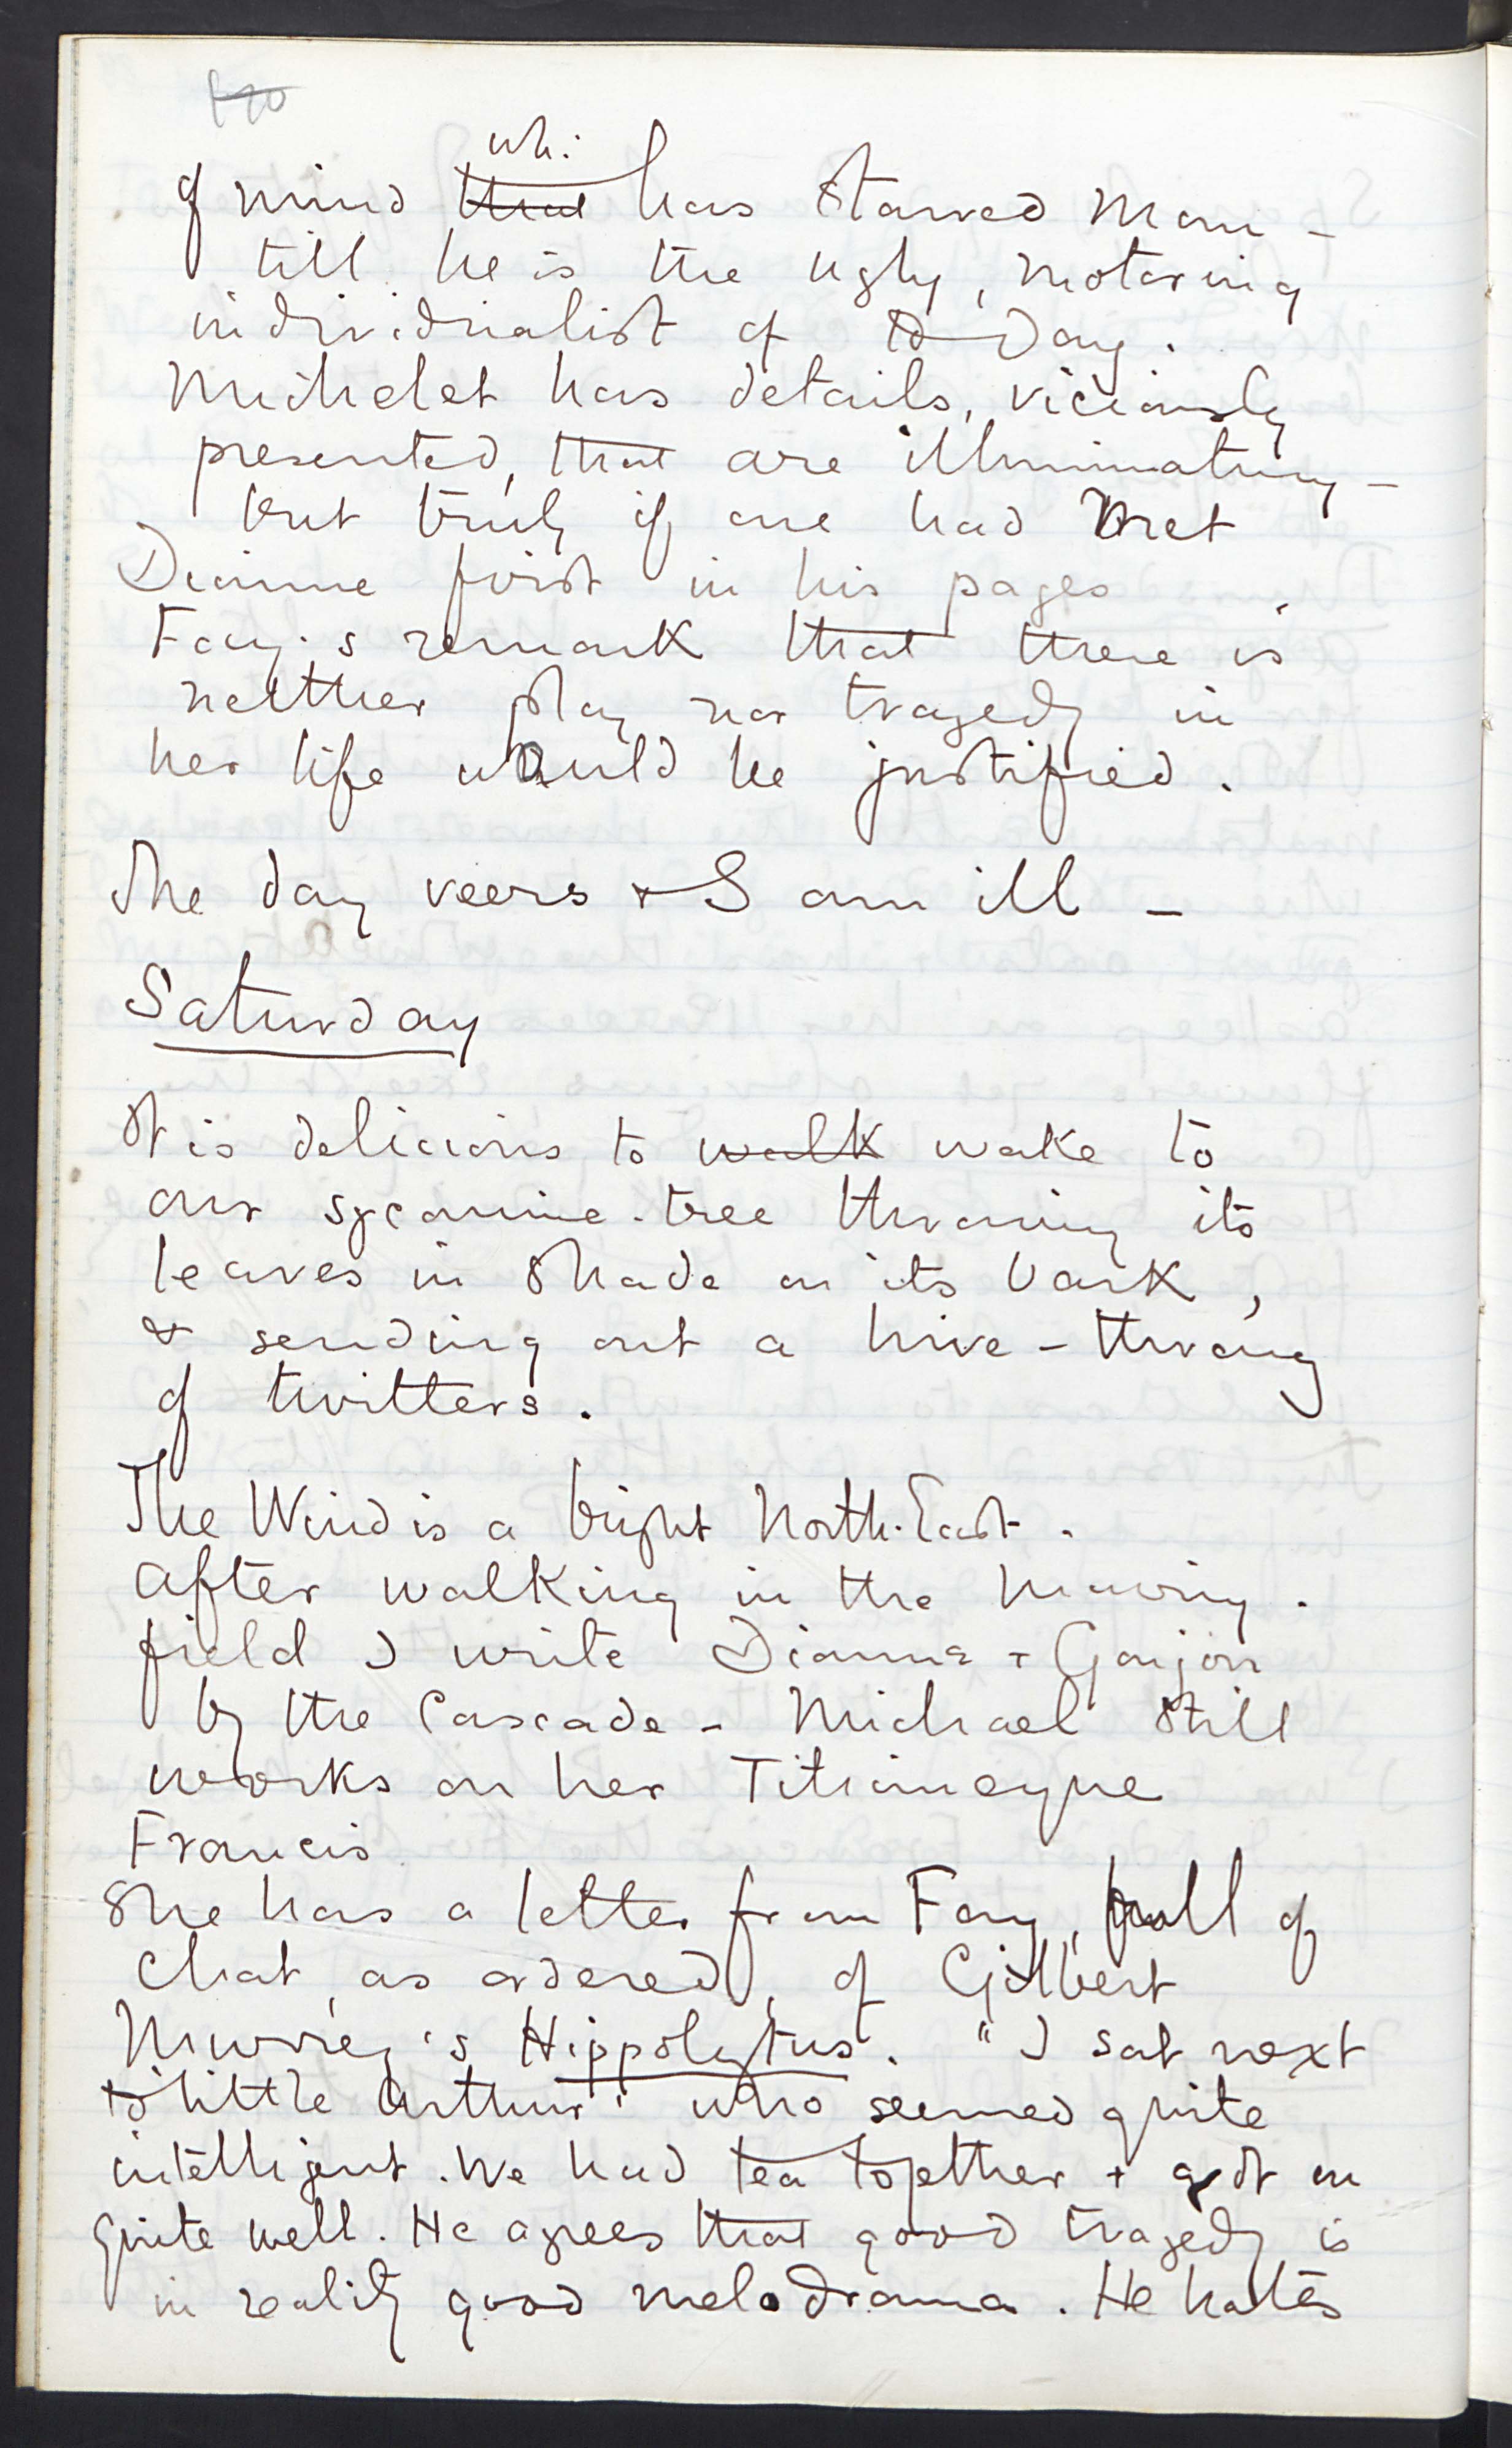 of mind that wh: has starved man -
till he is the ugly, motoring
individualist of to day.
Michelet has details, viciously
presented, that are illuminating -
but truly if one had met
Dianne first in his pages
Fay's remark that there is
neither play nor tragedy in
her life would be justified.
The day veers & I am ill -
Saturday
It is delicious to walk wake to
our sycamine-tree throwing its
leaves in shade on its bark,
& sending out a hive-throng
of twitters.
The Wind is a bright North-East.
After walking in the mowing-
field I write Dianne & Goujon
by the Cascade - Michael still
works on her Titianesque
Francis
She has a letter from Fay, full of
chat, as ordered, of Gilbert
Murray's Hippolytus. "I sat next
to 'little Arthur' who seemed quite
intelligent. We had tea together & got on
quite well. He agrees that good tragedy is
in reality good melodrama. He hates